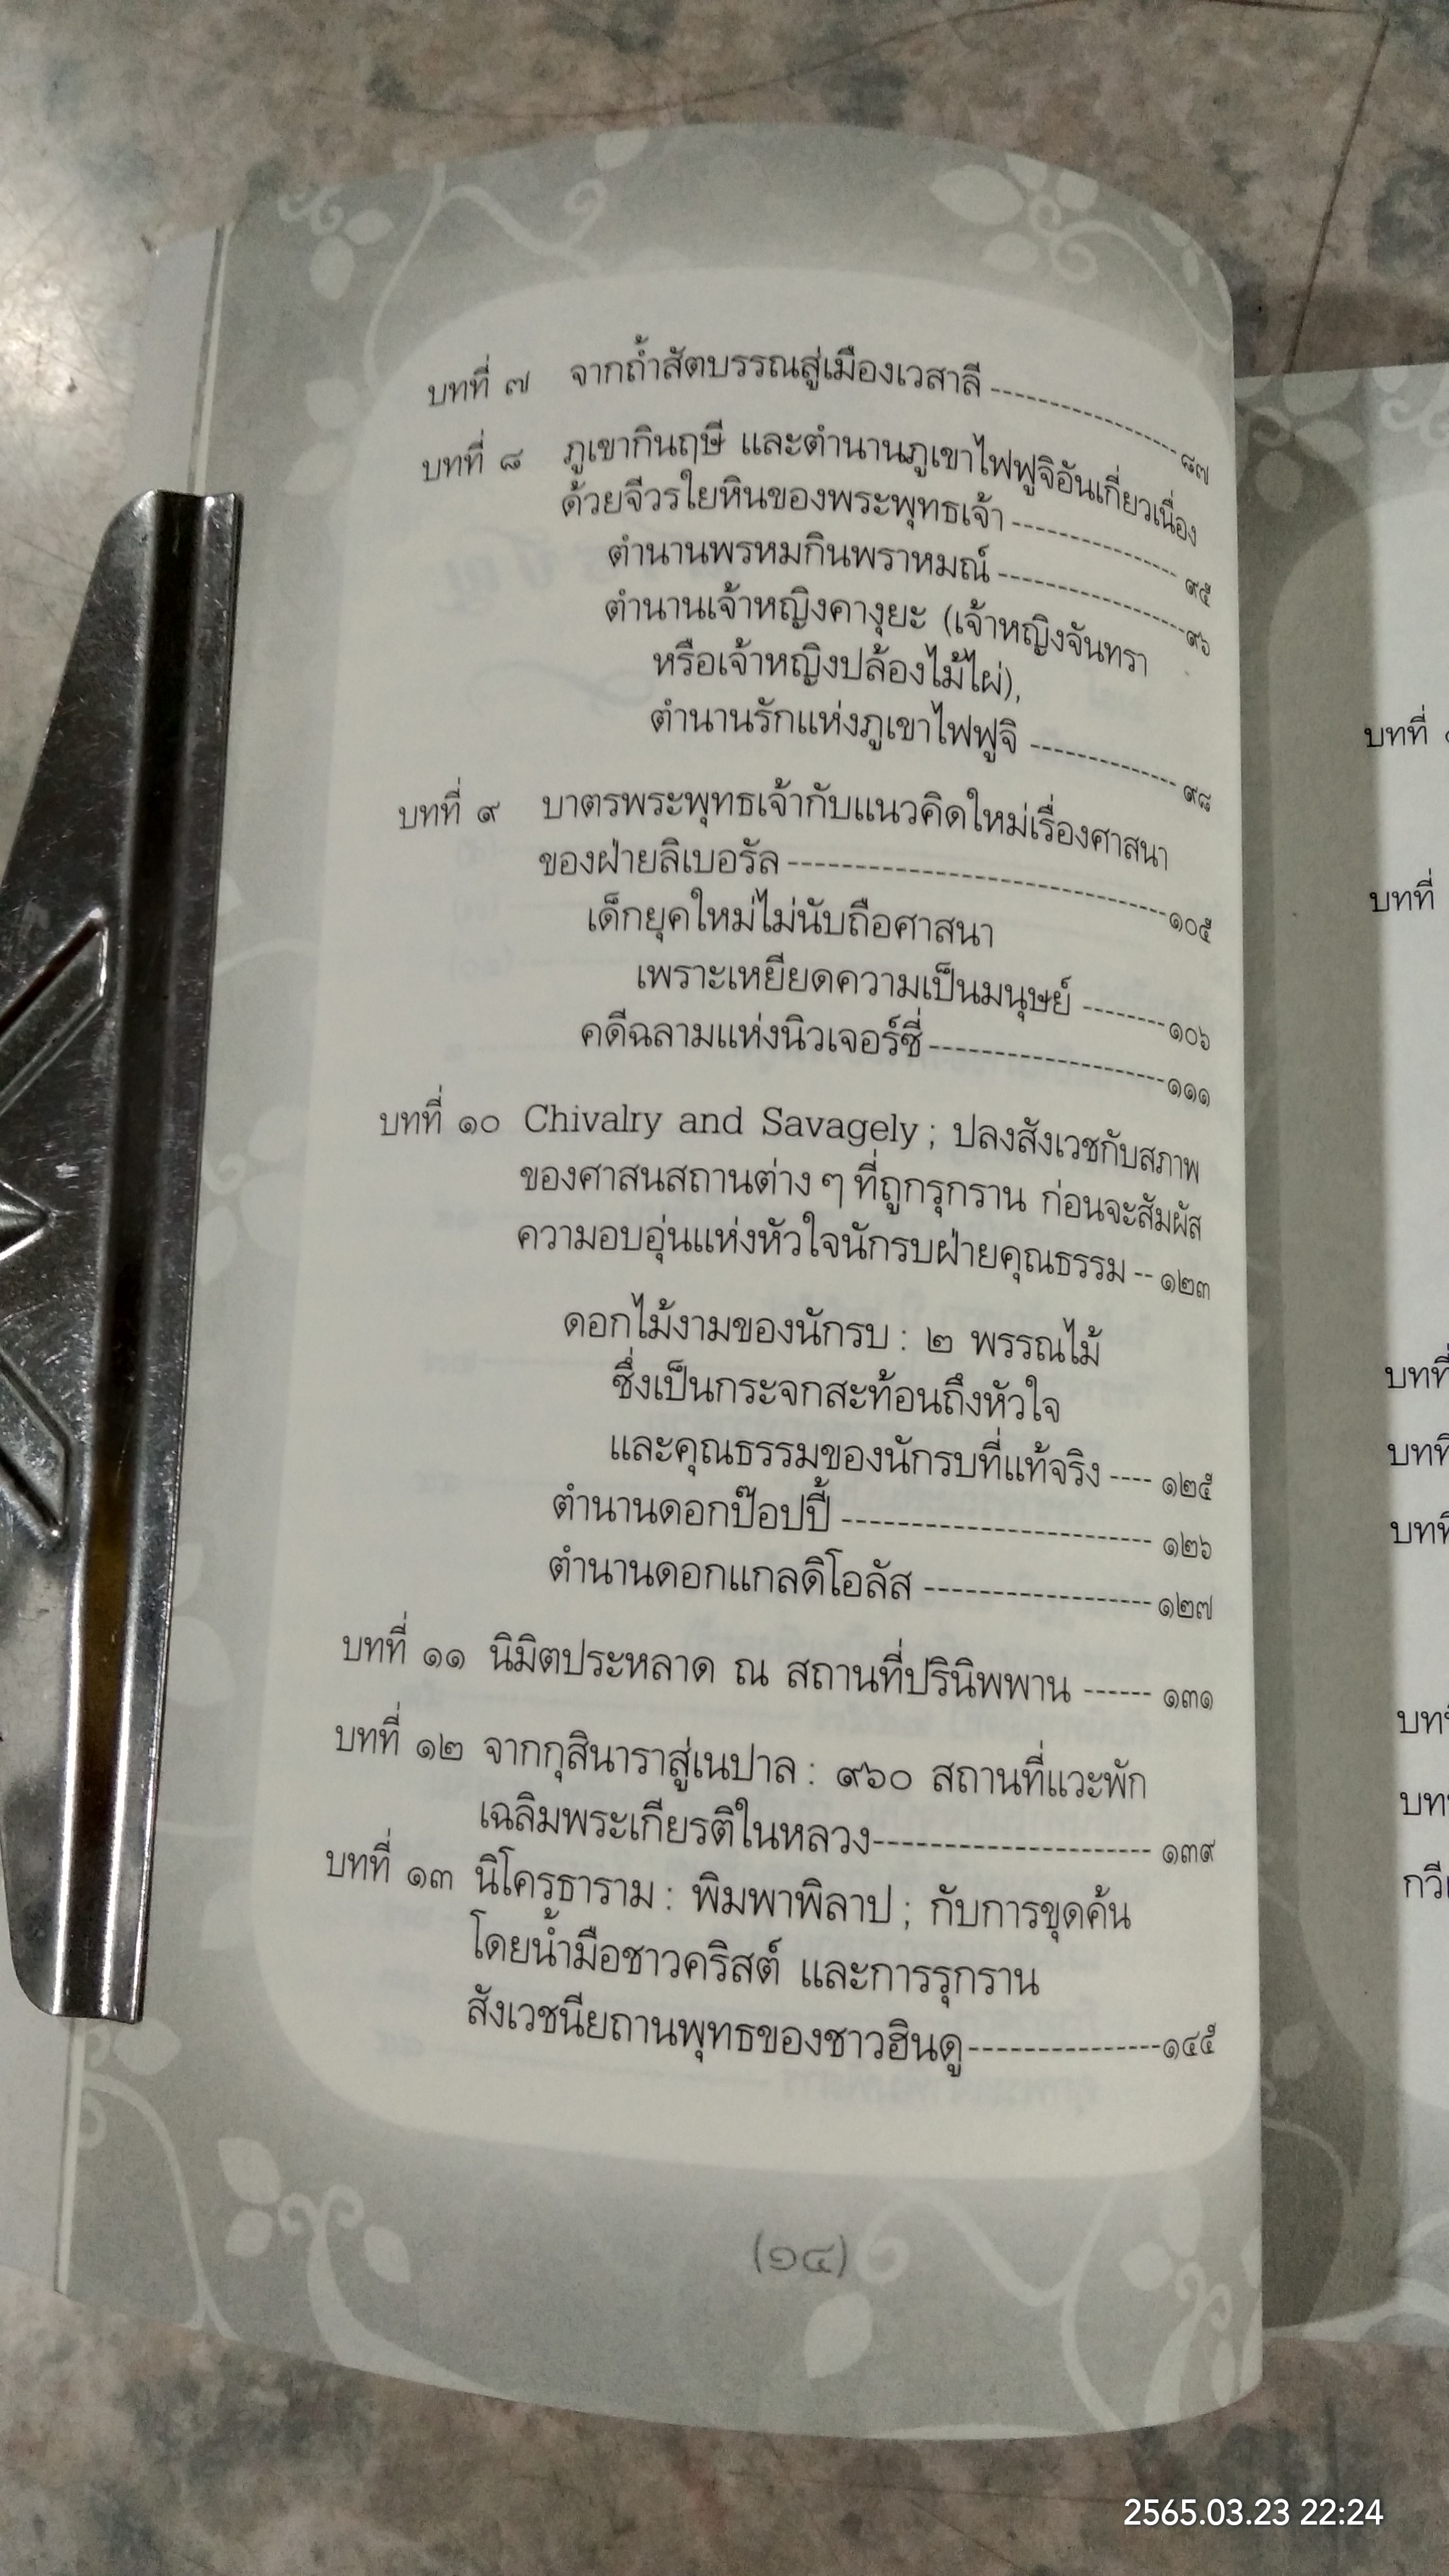 บทที่ ๗ จากถ้ำสัตบรรณสู่เมืองเวสาลี ---------------- ๘๗
บทที่ ๘ ภูเขากินฤษี และตำนานภูเขาไฟฟูจิอันเกี่ยวเนื่อง
ด้วยจีวรใยหินของพระพุทธเจ้า ---------------- ๙๕
ตำนานพรหมกินพราหมณ์ ---------------- ๙๖
ตำนานเจ้าหญิงคางุยะ (เจ้าหญิงจันทรา
หรือเจ้าหญิงปล้องไม้ไผ่),
ตำนานรักแห่งภูเขาไฟฟูจิ ------------ ๙๘
บทที่ ๙ บาตรพระพุทธเจ้ากับแนวคิดใหม่เรื่องศาสนา
ของฝ่ายลิเบอรัล ---------------------------- ๑๐๕
เด็กยุคใหม่ไม่นับถือศาสนา
เพราะเหยียดความเป็นมนุษย์ -------- ๑๐๖
คดีฉลามแห่งนิวเจอร์ซี่ -------------------- ๑๑๑
บทที่ ๑๐ Chivalry and Savagely ; ปลงสังเวชกับสภาพ
ของศาสนสถานต่าง ๆ ที่ถูกรุกราน ก่อนจะสัมผัส
ความอบอุ่นแห่งหัวใจนักรบฝ่ายคุณธรรม -- ๑๒๓
ดอกไม้งามของนักรบ : ๒ พรรณไม้
ซึ่งเป็นกระจกสะท้อนถึงหัวใจ
และคุณธรรมของนักรบที่แท้จริง ---- ๑๒๕
ตำนานดอกป๊อปปี้ -------------------------- ๑๒๖
ตำนานดอกแกลดิโอลัส ------------------- ๑๒๗
บทที่ ๑๑ นิมิตประหลาด ณ สถานที่ปรินิพพาน ------ ๑๓๑
บทที่ ๑๒ จากกุสินาราสู่เนปาล : ๙๖๐ สถานที่แวะพัก
เฉลิมพระเกียรติในหลวง----------------------- ๑๓๙
บทที่ ๑๓ นิโครธาราม : พิมพาพิลาป ; กับการขุดค้น
โดยน้ำมือชาวคริสต์ และการรุกราน
สังเวชนียถานพุทธของชาวฮินดู----------------๑๔๕
(๑๔)
บทที่
บทที่
บทที่
บทที่
2565.03.23 22:24